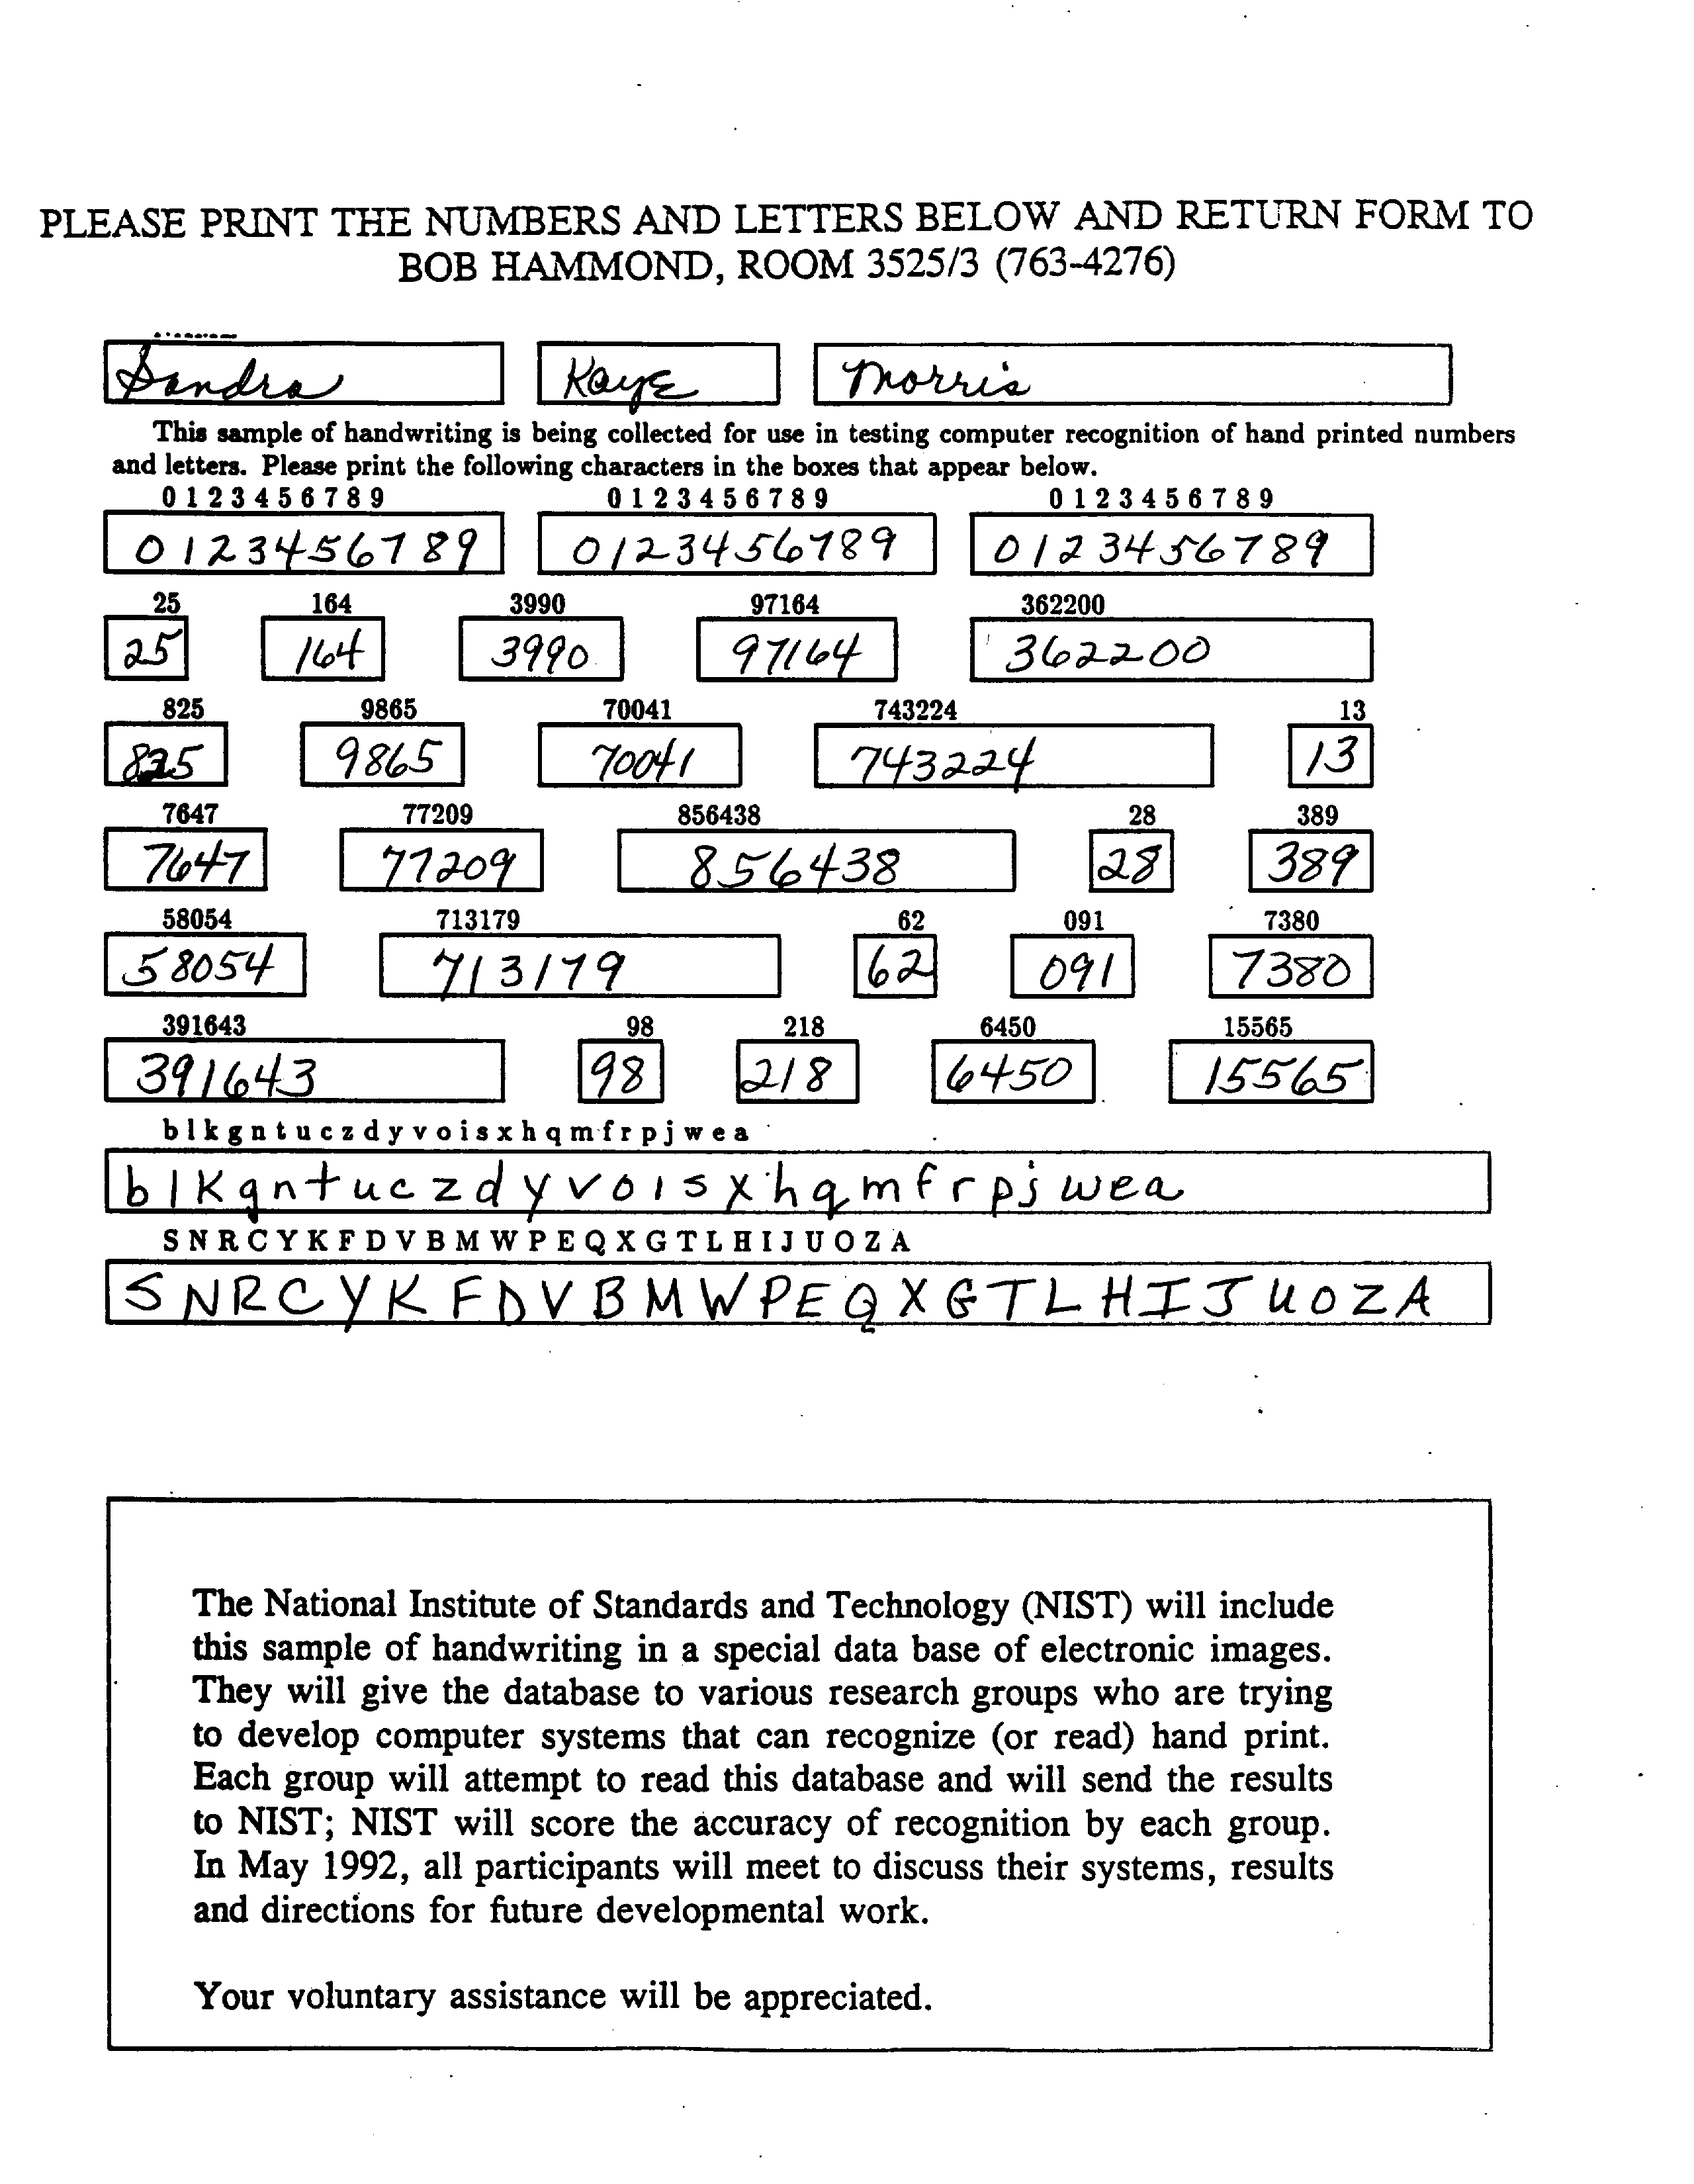 PLEASE PRINT THE NUMBERS AND LETTERS BELOW AND RETURN FORM TO
BOB HAMMOND, ROOM 3525/3 (763-4276)
Sandra Kaye Morris
This sample of handwriting is being collected for use in testing computer recognition of hand printed numbers
and letters. Please print the following characters in the boxes that appear below.
0 1 2 3 4 5 6 7 8 9 0 1 2 3 4 5 6 7 8 9 0 1 2 3 4 5 6 7 8 9
0123456789 0123456789 0123456789
25 164 3990 97164 362200
25 164 3990 97164 362200
825 9865 70041 743224 13
825 9865 70041 743224 13
7647 77209 856438 28 389
7647 77209 856438 28 389
58054 713179 62 091 7380
58054 713179 62 091 7380
391643 98 218 6450 15565
391643 98 218 6450 15565
b l k g n t u c z d y v o i s x h q m f r p j w e a
b l k g n t u c z d y v o i s x h q m f r p j w e a
S N R C Y K F D V B M W P E Q X G T L H I J U O Z A
S N R C Y K F D V B M W P E Q X G T L H I J U O Z A
The National Institute of Standards and Technology (NIST) will include
this sample of handwriting in a special data base of electronic images.
They will give the database to various research groups who are trying
to develop computer systems that can recognize (or read) hand print.
Each group will attempt to read this database and will send the results
to NIST; NIST will score the accuracy of recognition by each group.
In May 1992, all participants will meet to discuss their systems, results
and directions for future developmental work.
Your voluntary assistance will be appreciated.